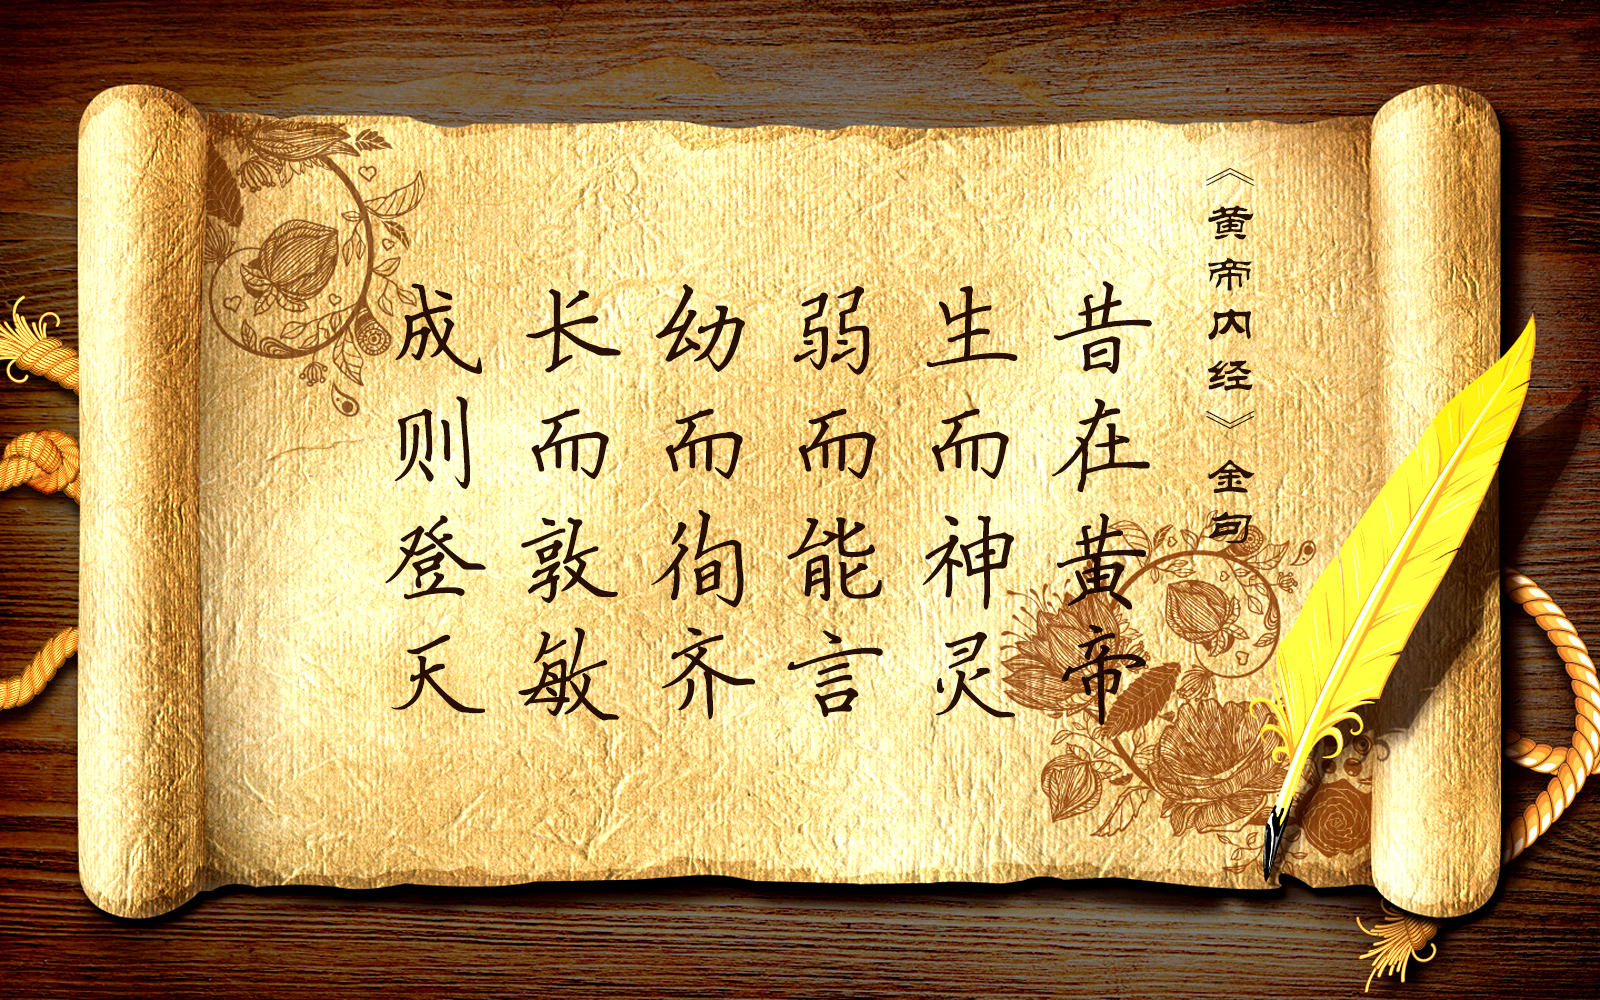 《黄帝内经》金句
昔在黄帝
生而神灵
弱而能言
幼而徇齐
长而敦敏
成则登天